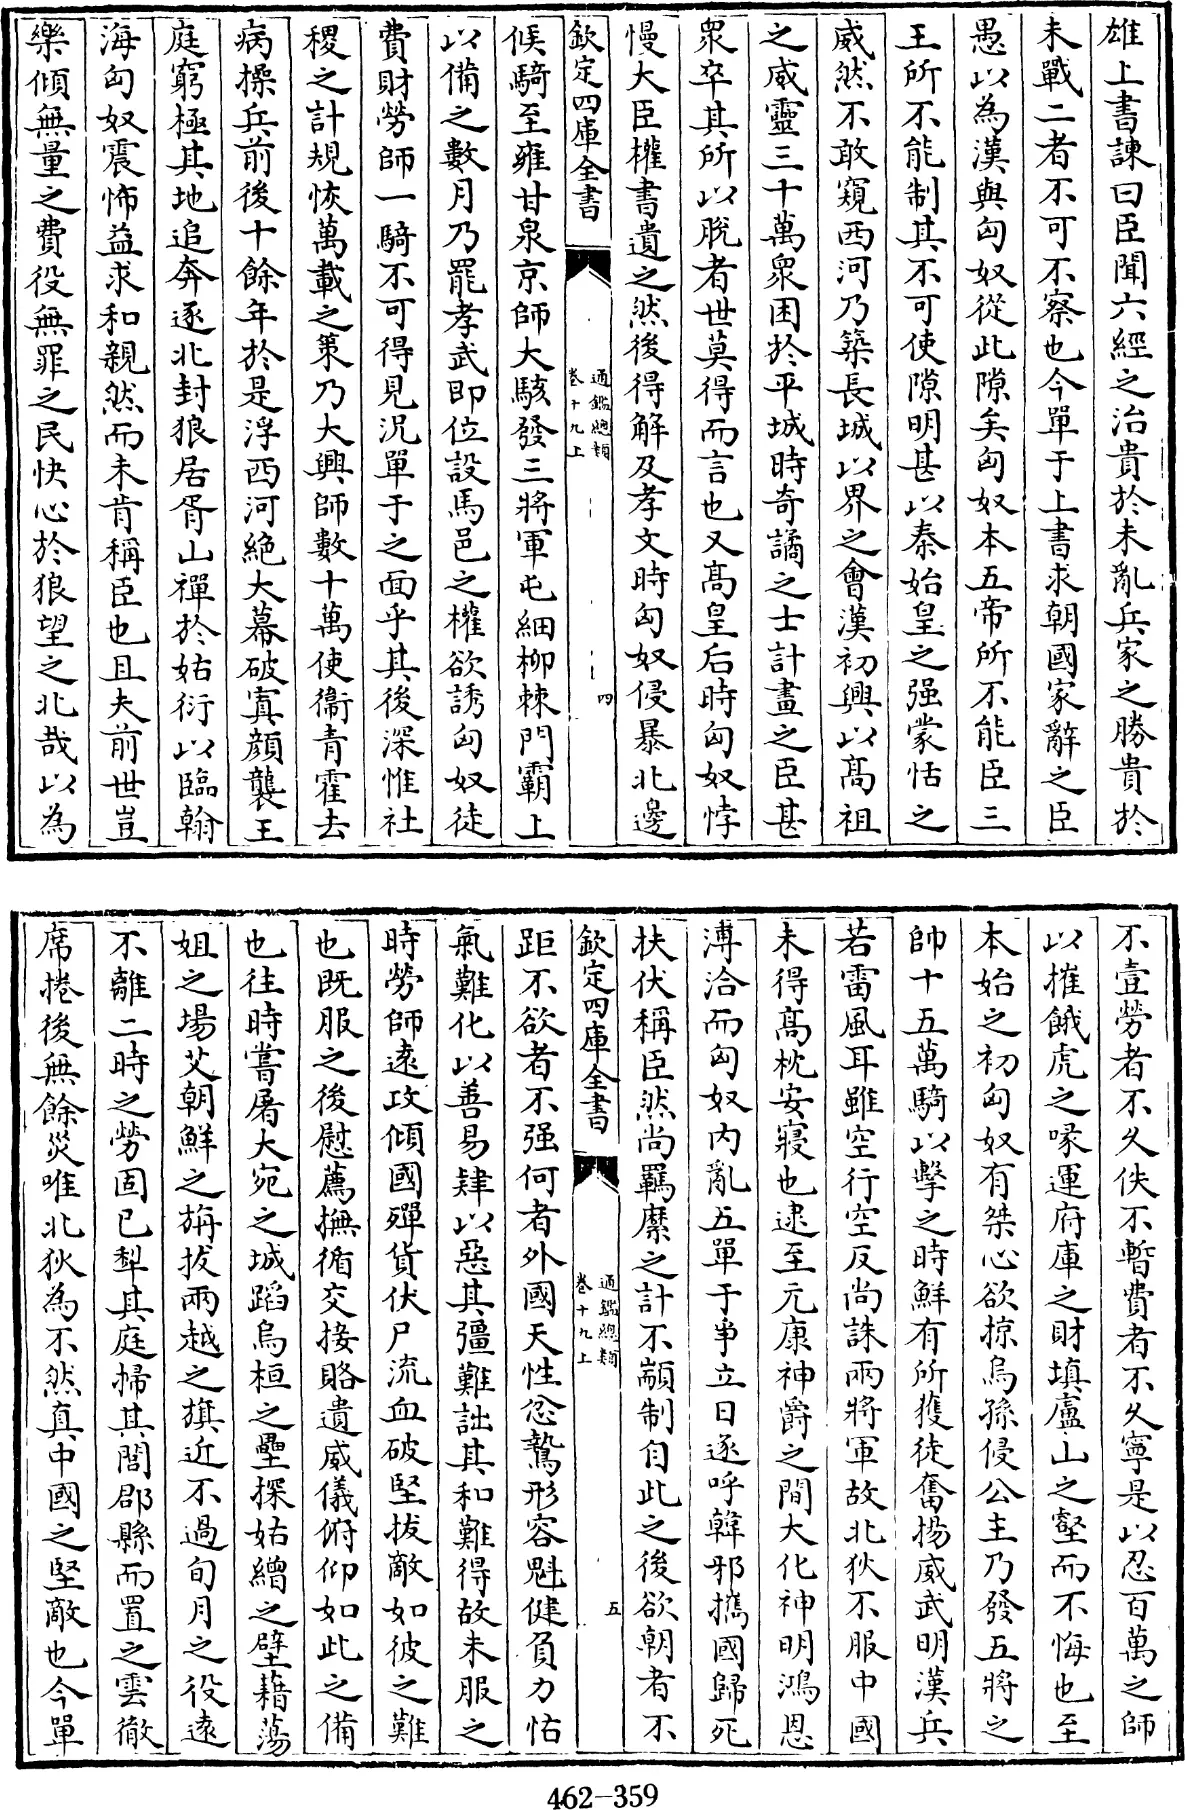 雄上書諫曰臣聞六經之治貴於未亂兵家之勝貴於
未戰二者不可不察也今單于上書求朝國家辭之臣
愚以為漢與匈奴從此隙矣匈奴本五帝所不能臣三
王所不能制其不可使隙明甚以秦始皇之强蒙恬之
威然不敢窺西河乃築長城以界之會漢初興以高祖
之威靈三十萬衆困於平城時奇譎之士計畫之臣甚
衆卒其所以脫者世莫得而言也又高皇后時匈奴悖
慢大臣權書遺之然後得解及孝文時匈奴侵暴北邊
欽定四庫全書
通鑑總類
卷十九上
四
候騎至雍甘泉京師大駭發三將軍屯細柳棘門霸上
以備之數月乃罷孝武即位設馬邑之權欲誘匈奴徒
費財勞師一騎不可得見況單于之面乎其後深惟社
稷之計規恢萬載之策乃大興師數十萬使衞青霍去
病操兵前後十餘年於是浮西河絶大幕破寘顔襲王
庭窮極其地追奔逐北封狼居胥山禪於姑衍以臨翰
海匈奴震怖益求和親然而未肯稱臣也且夫前世豈
樂傾無量之費役無罪之民快心於狼望之北哉以為
不壹勞者不久佚不暫費者不久寧是以忍百萬之師
以摧餓虎之喙運府庫之財填盧山之壑而不悔也至
本始之初匈奴有桀心欲掠烏孫侵公主乃發五將之
帥十五萬騎以擊之時鮮有所獲徒奮揚威武明漢兵
若雷風耳雖空行空反尚誅兩將軍故北狄不服中國
未得高枕安寢也逮至元康神爵之間大化神明鴻恩
溥洽而匈奴内亂五單于爭立日逐呼韓邪攜國歸死
扶伏稱臣然尚羈縻之計不顓制自此之後欲朝者不
欽定四庫全書
通鑑總類
卷十九上
五
距不欲者不强何者外國天性忿鷙形容魁健負力怙
氣難化以善易肆以惡其彊難詘其和難得故未服之
時勞師遠攻傾國殫貨伏尸流血破堅拔敵如彼之難
也既服之後慰薦撫循交接賂遺威儀俯仰如此之備
也往時嘗屠大宛之城蹈烏桓之壘探姑繒之壁藉蕩
姐之場艾朝鮮之旃拔兩越之旗近不過旬月之役遠
不離二時之勞固已犂其庭掃其閭郡縣而置之雲徹
席捲後無餘災唯北狄為不然真中國之堅敵也今單
462-359